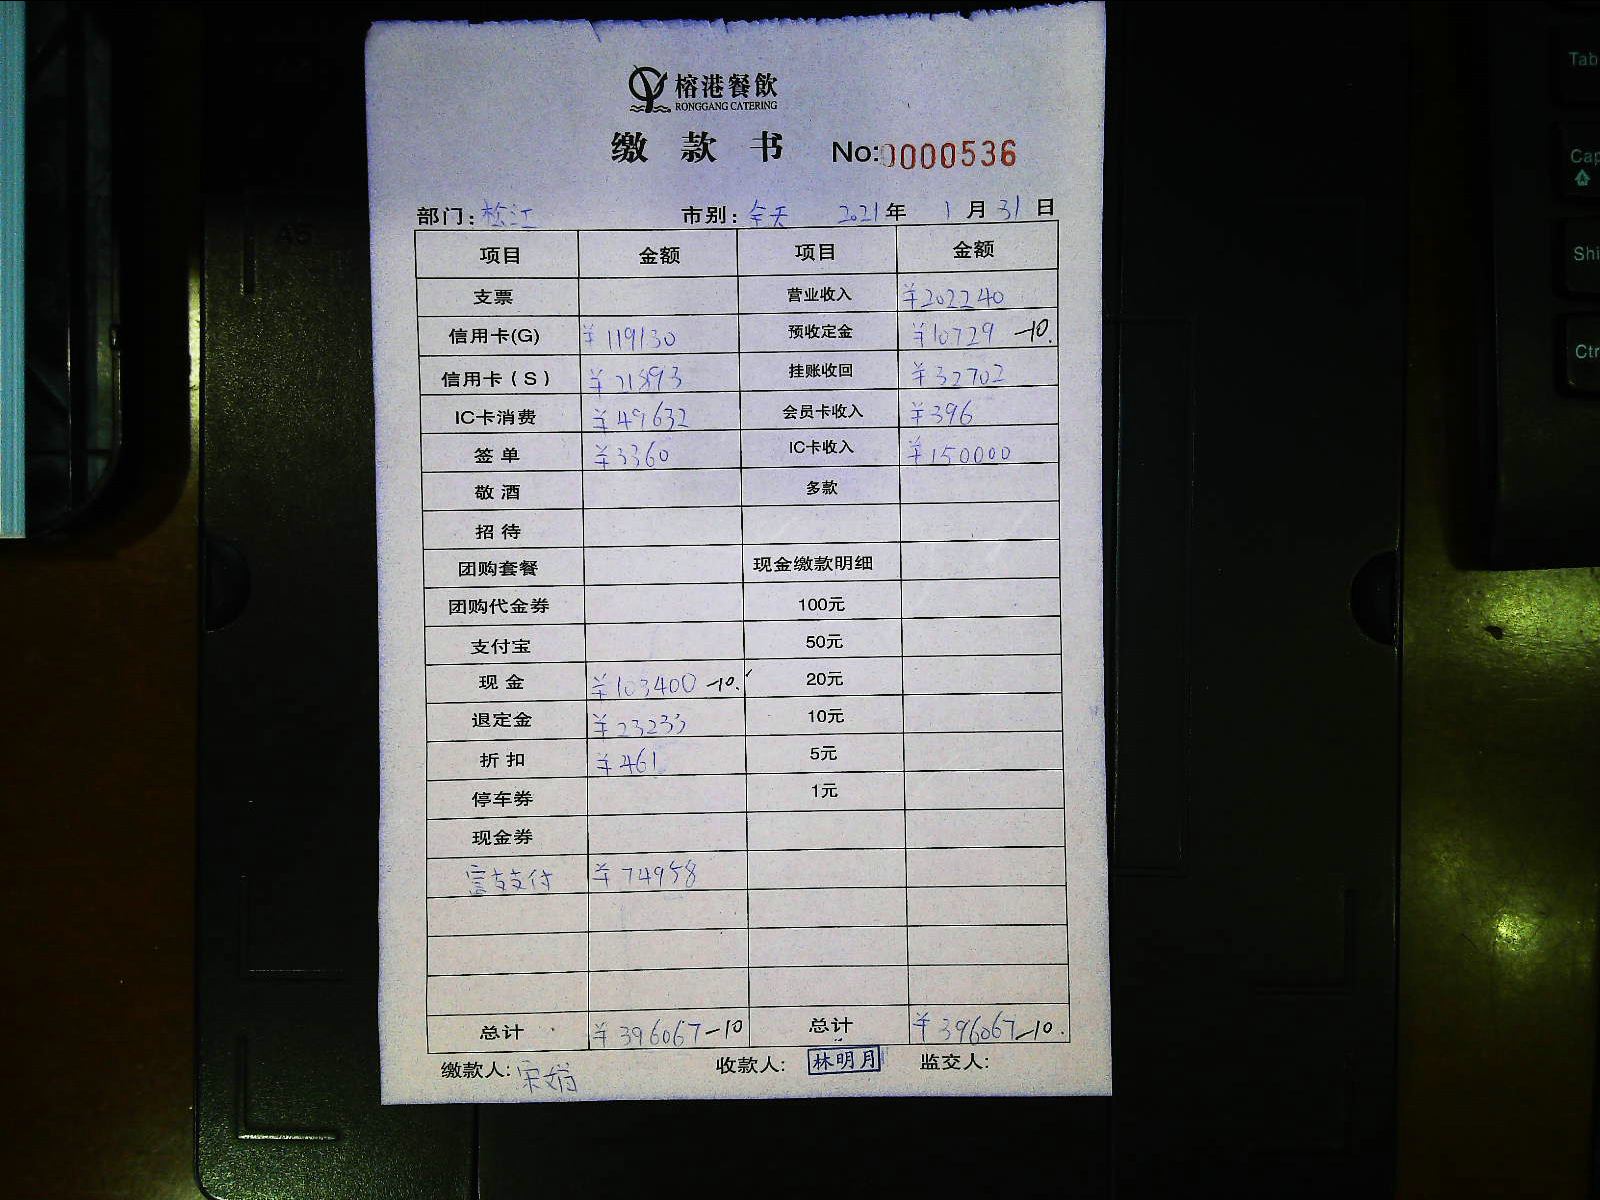 榕港餐飲
RONGGANG CATERING
缴款书 No:0000536
部门: 松江 市别: 全天 2021年 1月31日
项目 金额 项目 金额
支票 营业收入 ¥202240
信用卡(G) ¥119130 预收定金 ¥10729 -10.
信用卡(S) ¥21893 挂账收回 ¥32702
IC卡消费 ¥49632 会员卡收入 ¥396
签单 ¥3360 IC卡收入 ¥150000
敬酒 多款
招待
团购套餐 现金缴款明细
团购代金券 100元
支付宝 50元
现金 ¥103400 -10. 20元
退定金 ¥23233 10元
折扣 ¥461 5元
停车券 1元
现金券
富友支付 ¥74958
总计 ¥396067-10 总计 ¥396067-10.
缴款人: 宋娟 收款人: 林明月 监交人:
Tab
Cap
Shi
Ctr